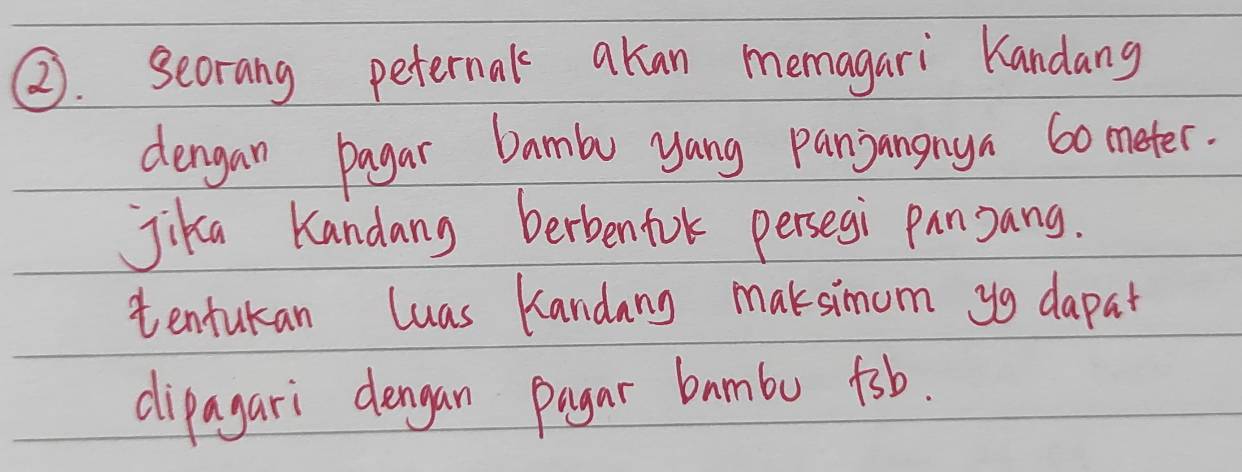 ②. Seorang peternak akan memagari kandang
dengan pagar bambu yang panjangnya 60 meter.
jika kandang berbentuk persegi panjang.
tentukan luas kandang maksimum yg dapat
dipagari dengan pagar bambu tsb.